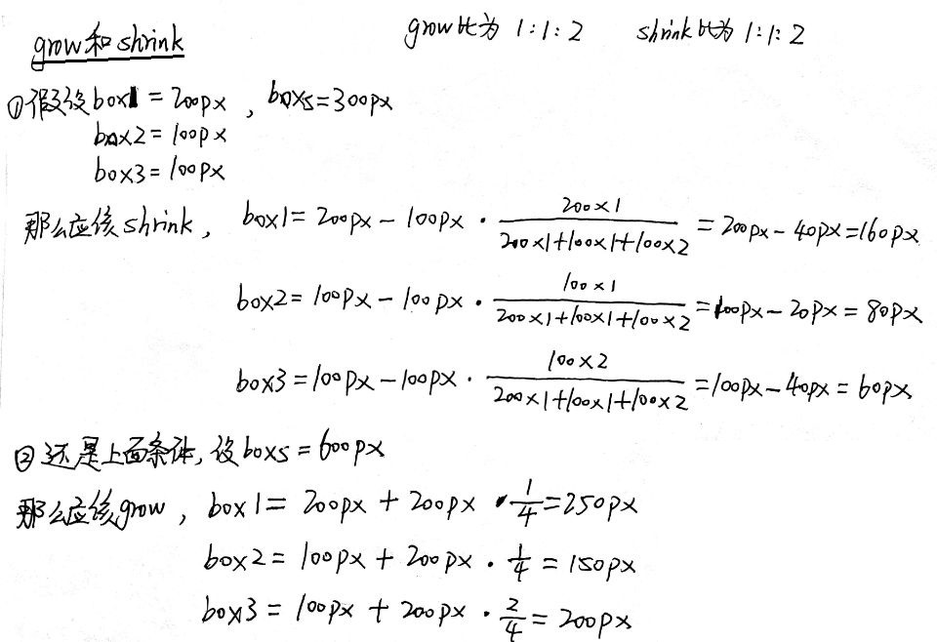 grow和shrink
grow比为 1:1:2 shrink比为 1:1:2
①假设box1=200px , boxs=300px
box2=100px
box3=100px
那么应该shrink, box1=200px-100px·(200×1)/(200×1+100×1+100×2)=200px-40px=160px
box2=100px-100px·(100×1)/(200×1+100×1+100×2)=100px-20px=80px
box3=100px-100px·(100×2)/(200×1+100×1+100×2)=100px-40px=60px
②还是上面条件,设boxs=600px
那么应该grow, box1=200px+200px·1/4=250px
box2=100px+200px·1/4=150px
box3=100px+200px·2/4=200px